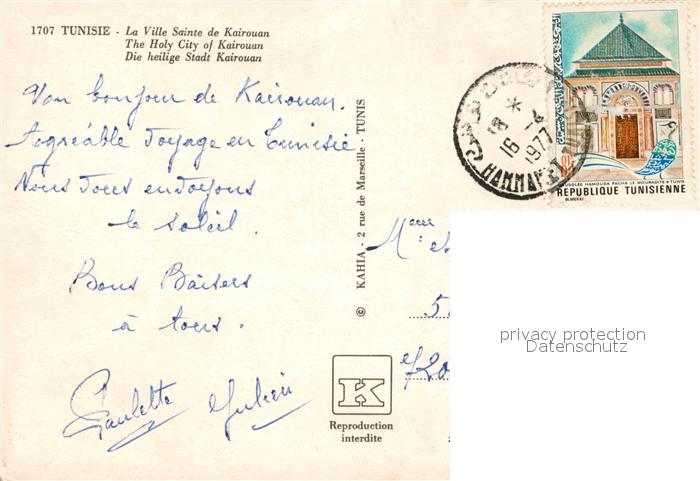 1707 TUNISIE - La Ville Sainte de Kairouan
The Holy City of Kairouan
Die heilige Stadt Kairouan
bonjour de Kairouan.
Agréable voyage en Tunisie
Nous vous envoyons
le soleil.
Bons Baisers
à tous.
Paulette Julien
© KAHIA - 2 rue de Marseille - TUNIS
K
Reproduction
interdite
18
16
1977
HAMMAMET
MAUSOLEE HAMOUDA PACHA LE MOURADITE • TUNIS
REPUBLIQUE TUNISIENNE
privacy protection
Datenschutz